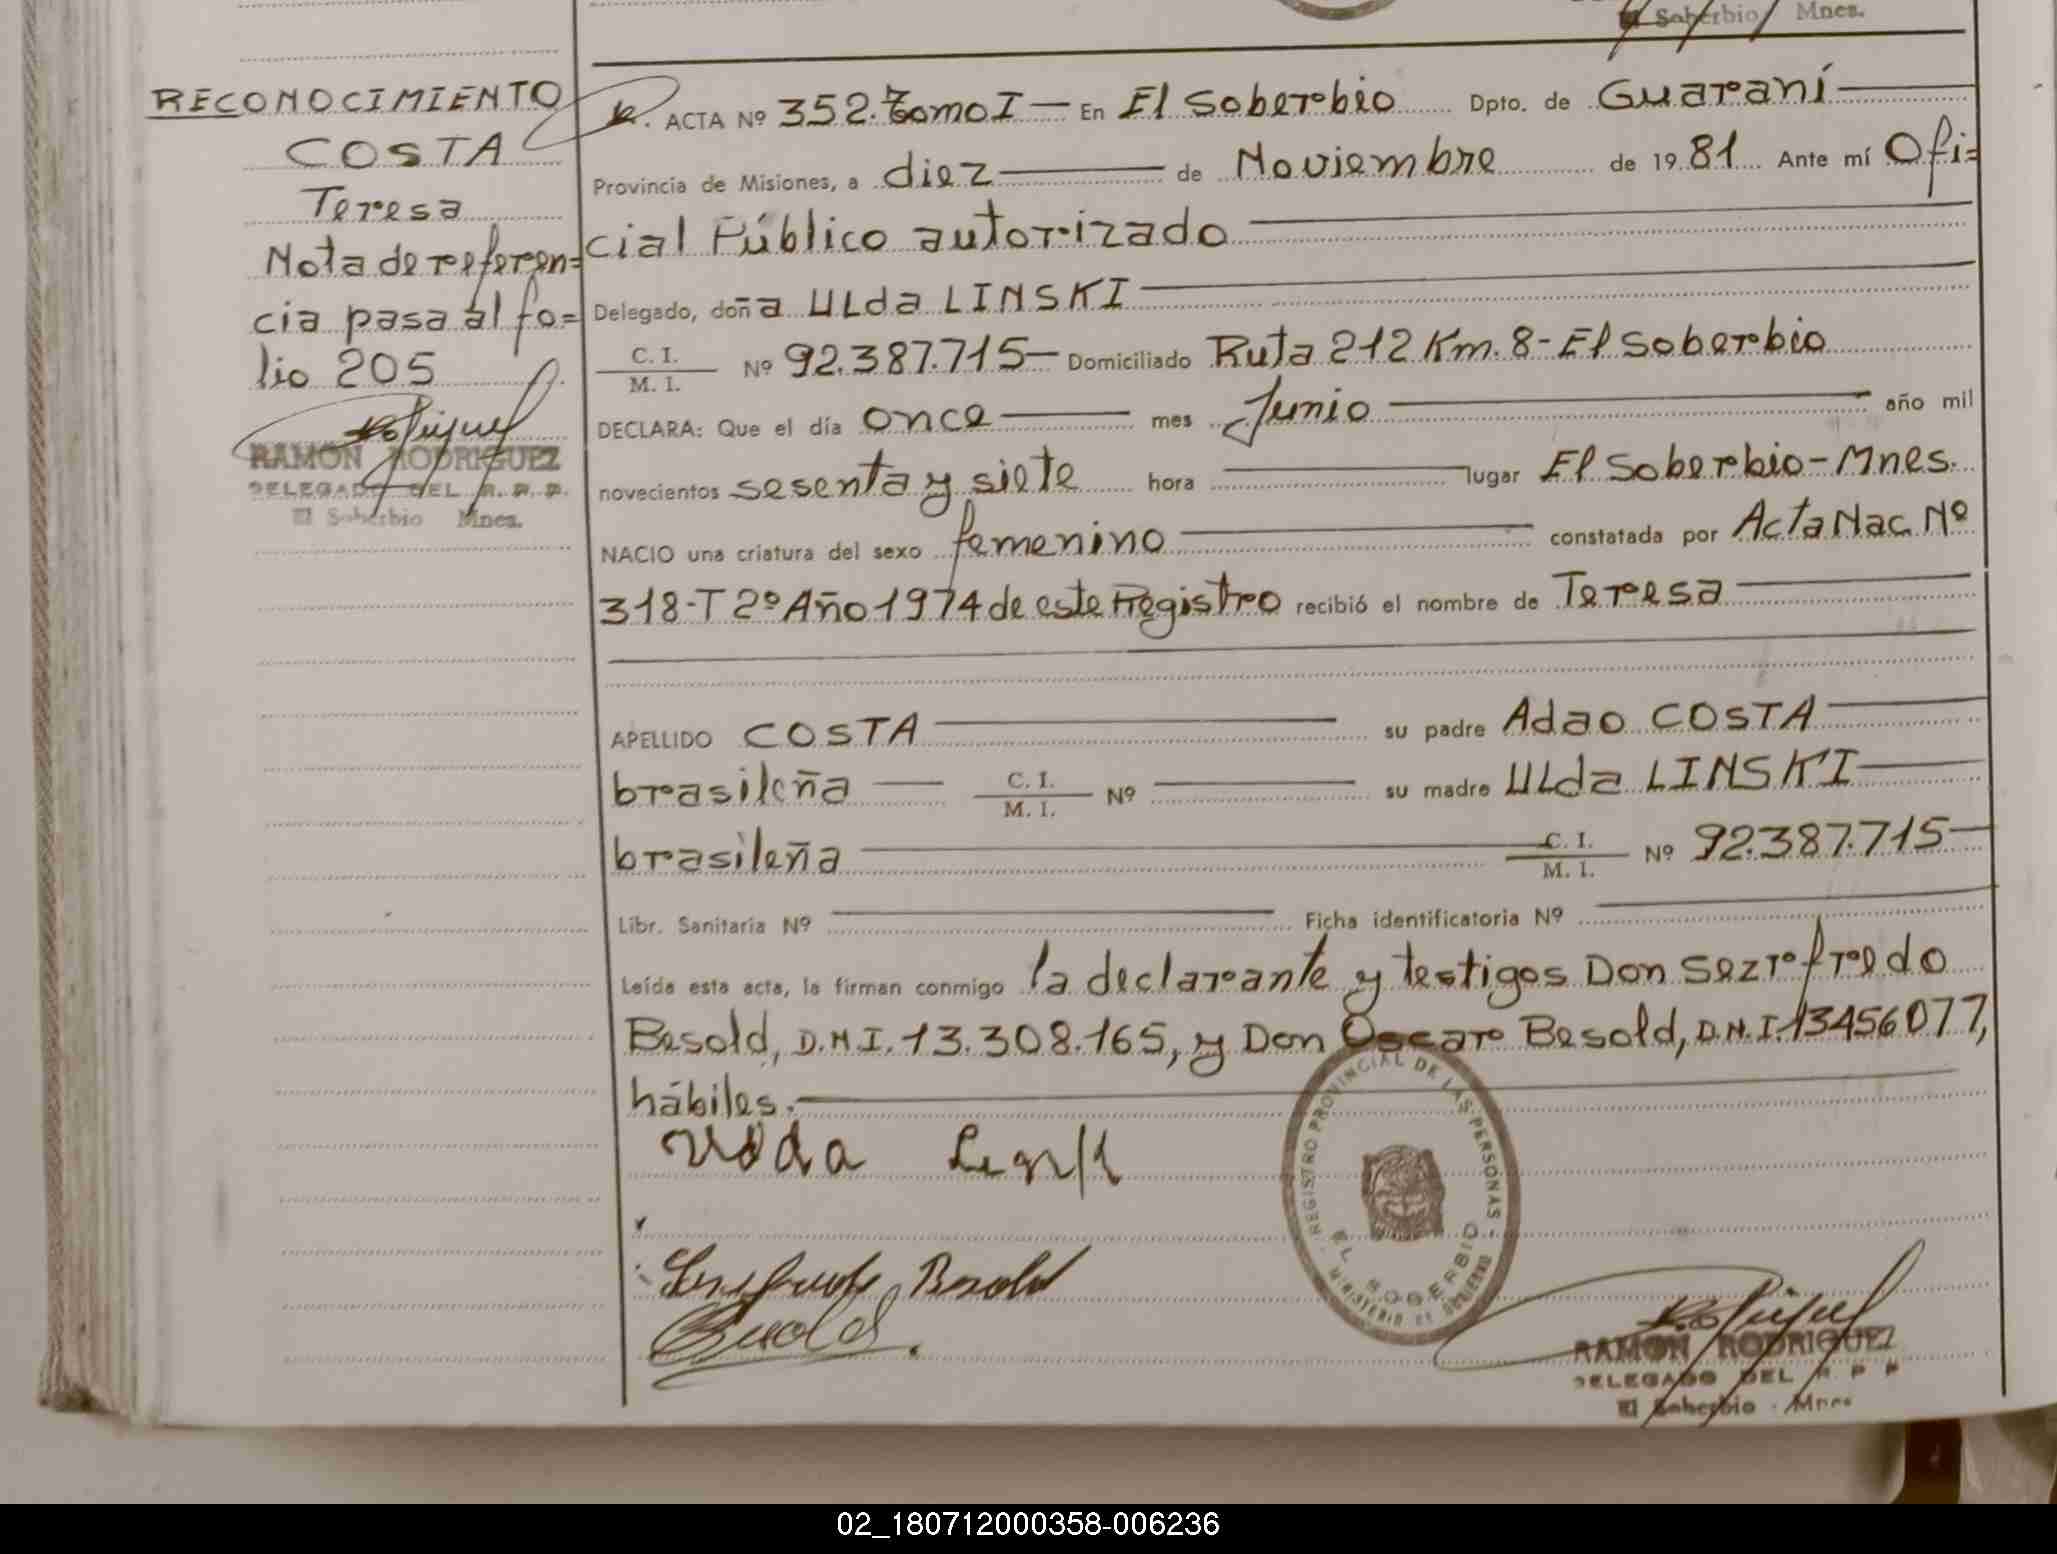 El Soberbio Mnes.
RECONOCIMIENTO
COSTA
Teresa
Nota de referen=
cia pasa al fo=
lio 205
RAMON RODRIGUEZ
DELEGADO DEL R. P. P.
El Soberbio Mnes.
R. ACTA Nº 352. Tomo I — En El Soberbio Dpto. de Guaraní
Provincia de Misiones, a diez de Noviembre de 19 81 Ante mí Ofi=
cial Público autorizado
Delegado, doña ULda LINSKI
C. I. / M. I. Nº 92.387.715 — Domiciliado Ruta 212 Km. 8 - El Soberbio
DECLARA: Que el día once mes Junio año mil
novecientos sesenta y siete hora lugar El Soberbio - Mnes.
NACIO una criatura del sexo femenino constatada por Acta Nac. Nº
318-T 2º Año 1974 de este Registro recibió el nombre de Teresa
APELLIDO COSTA su padre Adao COSTA
brasileña C. I. / M. I. Nº su madre ULda LINSKI
brasileña C. I. / M. I. Nº 92.387.715
Libr. Sanitaria Nº Ficha identificatoria Nº
Leída esta acta, la firman conmigo la declarante y testigos Don Sezrefredo
Besold, D.N.I. 13.308.165, y Don Oscar Besold, D.N.I. 13456077,
hábiles.
REGISTRO PROVINCIAL DE LAS PERSONAS - MINISTERIO DE GOBIERNO
EL SOBERBIO
Besold
RAMON RODRIGUEZ
DELEGADO DEL R. P. P.
El Soberbio - Mnes
02_180712000358-006236